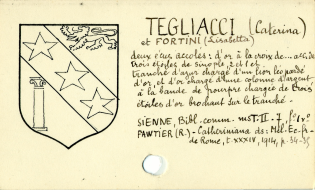 TEGLIACCI (Caterina)
et FORTINI (Lisabetta)
deux écus accolés : d'or à la croix de... acc. de
trois étoiles de sinople, 2 et 1 et
tranché d'azur chargé d'un lion léopardé
d'or et d'or chargé d'une colonne d'argent
à la bande de pourpre chargée de trois
étoiles d'or brochant sur le tranché.
SIENNE, Bibl. comm. ms I-II-7, f° 1 v°
PAWTIER (R.) - Catheriniana ds: Mél. Ec. fr.
de Rome, t. XXXIV, 1914, p. 34-35